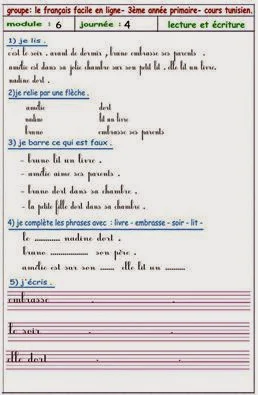 groupe: le français facile en ligne- 3ème année primaire- cours tunisien.
module : 6 journée : 4 lecture et écriture
1) je lis .
c'est le soir . avant de dormir , bruno embrasse ses parents .
amélie est dans sa jolie chambre sur son petit lit . elle lit un livre.
nadine dort .
2)je relie par une flèche .
amélie dort
nadine lit un livre
bruno embrasse ses parents
3) je barre ce qui est faux .
- bruno lit un livre .
- amélie aime ses parents .
- bruno dort dans sa chambre .
- la petite fille dort dans sa chambre .
4) je complète les phrases avec : livre - embrasse - soir - lit -
le ............. nadine dort .
bruno ............. son père .
amélie est sur son ....... elle lit un ..........
5) j'écris .
embrasse . .
le soir . .
elle dort . .